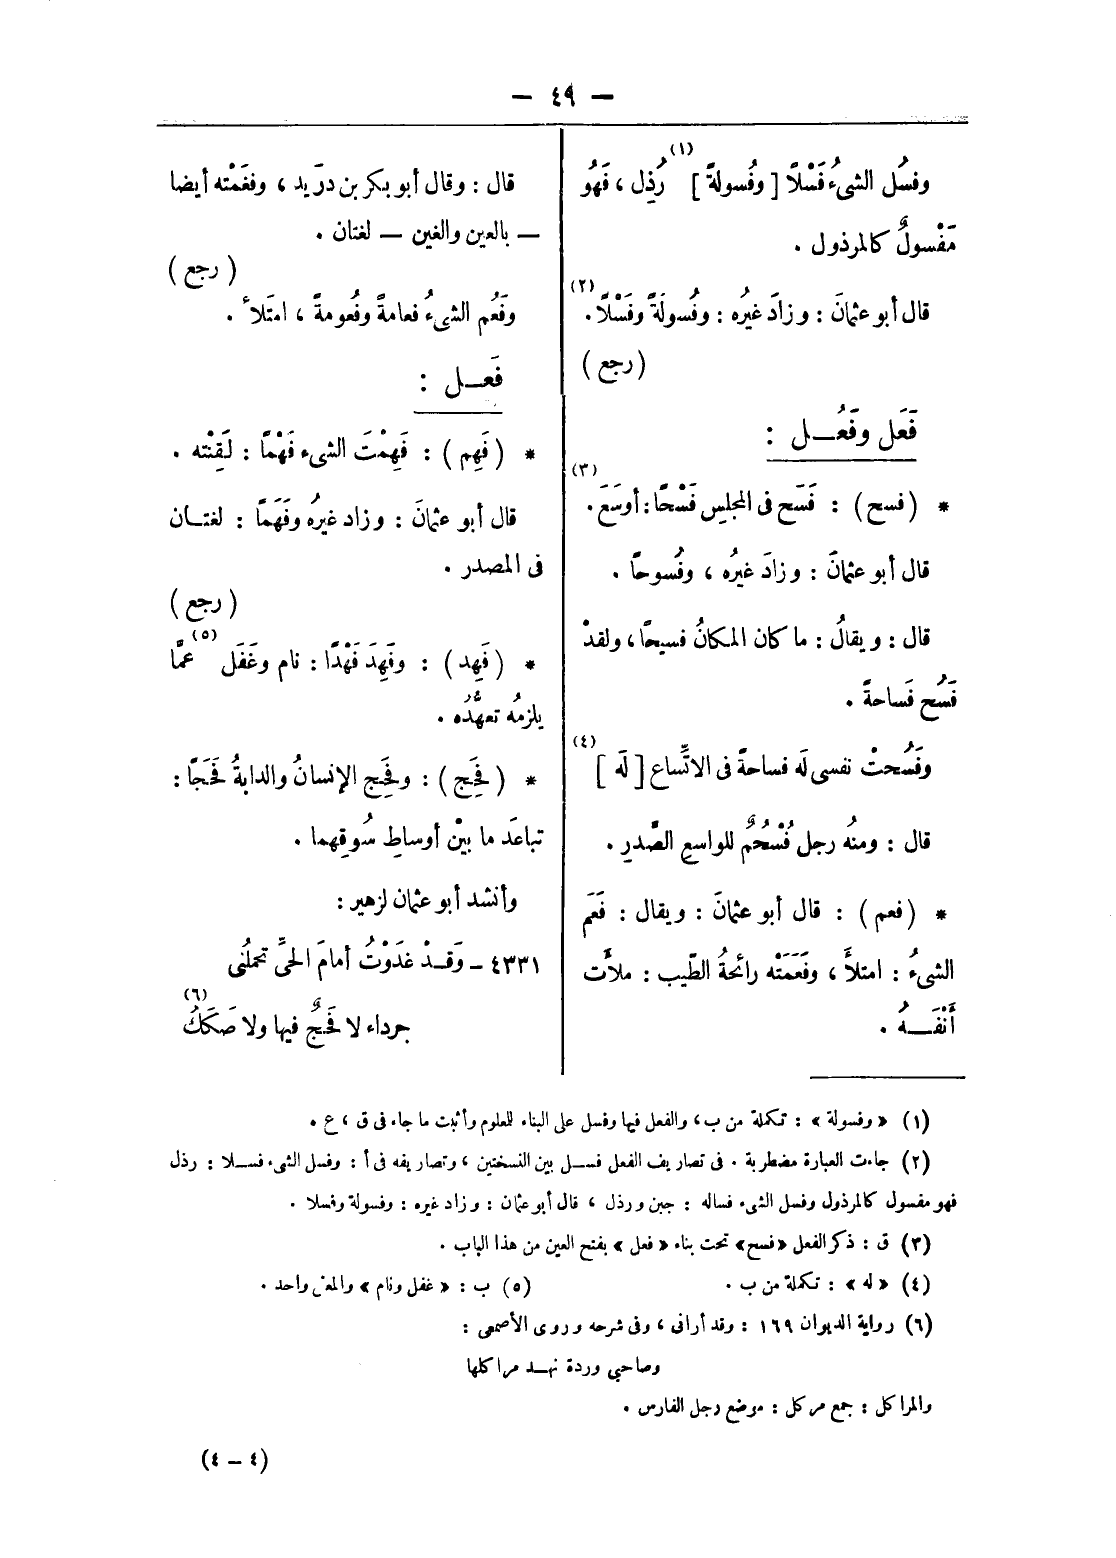 — ٤٩ —
وفسُل الشىءُ فَسْلًا [ وفُسولةً ] (١) رُذِل ، فَهُو
مَفْسولٌ كالمرذول .
قال أبو عثمانَ : وزادَ غيرُه : وفُسولَةً وفَسْلًا (٢) .
( رجع )
فَعَل وفَعُــل :
* ( فسح ) : فَسَح فى المجلِس فَسْحًا : أوسَعَ (٣) .
قال أبو عثمانَ : وزادَ غيرُه ، وفُسوحًا .
قال : ويقالُ : ما كان المكانُ فسيحًا ، ولقدْ
فَسُح فَساحةً .
وفَسُحتْ نفسى لَه فساحةً فى الاتِّساع [ لَه ] (٤)
قال : ومنُه رجل فُسْحُمٌ للواسعِ الصَّدرِ .
* ( فعم ) : قال أبو عثمانَ : ويقال : فَعَم
الشىءُ : امتلأَ ، وفَعَمَتْه رائحةُ الطّيب : ملأَت
أَنْفَــهُ .
قال : وقال أبو بكر بن درَيد ، وفغَمْته أيضا
— بالعين والغين — لغتان .
( رجع )
وفَعُم الشىءُ فعامةً وفُعومةً ، امتَلأ .
فَعِــل :
* ( فَهِم ) : فَهِمْتَ الشىء فَهْمًا : لَقِنْته .
قال أبو عثمانَ : وزاد غيرُه وفَهَمًا : لغتــان
فى المصدر .
( رجع )
* ( فَهِد ) : وفَهِدَ فَهْدًا : نام وغَفَل (٥) عمَّا
يلزمُه تعهُّدُه .
* ( فَحِج ) : وفَحِج الإنسانُ والدابةُ فَحَجًا :
تباعَد ما بيْن أوساطِ سُوقِهما .
وأنشد أبو عثمان لزهير :
٤٣٣١ - وَقــدْ غدَوْتُ أمامَ الحىِّ تحملُنى
جرداء لا فَحَجٌ فيها ولا صَكَكُ (٦)
(١) « وفسولة » : تكملة من ب ، والفعل فيها وفسل على البناء للعلوم وأثبت ما جاء فى ق ، ع .
(٢) جاءت العبارة مضطربة . فى تصاريف الفعل فســل بين النسختين ، وتصاريفه فى أ : وفسل الشىء فســلا : رذل
فهو مفسول كالمرذول وفسل الشىء فساله : جبن ورذل ، قال أبو عثمان : وزاد غيره : وفسولة وفسلا .
(٣) ق : ذكر الفعل «فسح» تحت بناء « فعل » بفتح العين من هذا الباب .
(٤) « له » : تكملة من ب .
(٥) ب : « غفل ونام » والمعنى واحد .
(٦) رواية الديوان ١٦٩ : وقد أرانى ، وفى شرحه وروى الأصمعى :
وصاحبى وردة نهــد مراكلها
والمراكل : جمع مركل : موضع رجل الفارس .
(٤ - ٤)